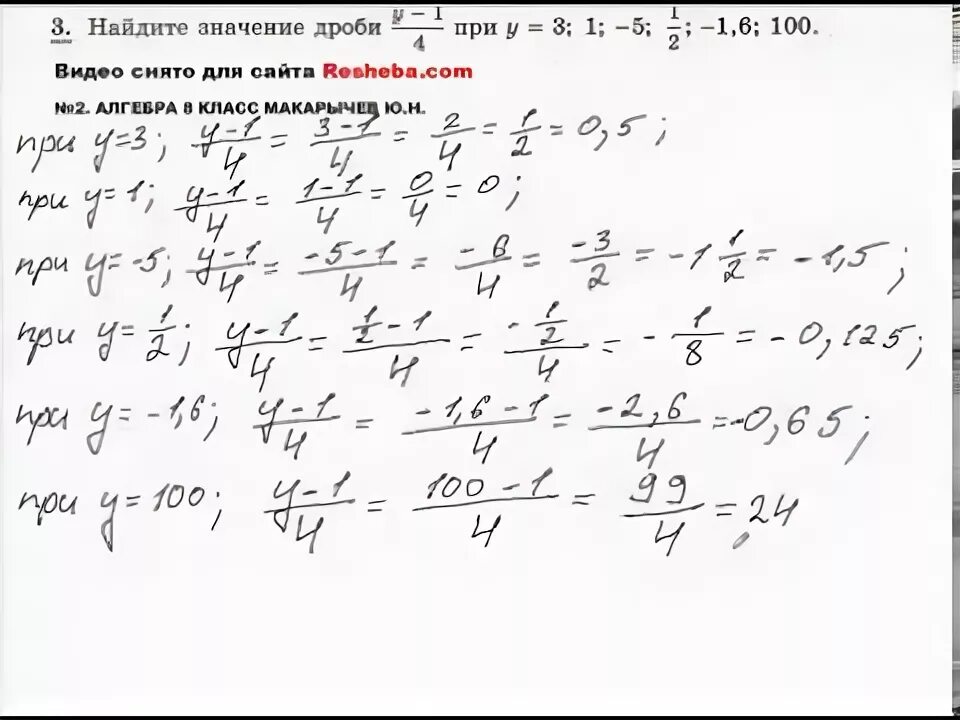 3. Найдите значение дроби (y − 1)/4 при y = 3; 1; −5; 1/2; −1,6; 100.
Видео снято для сайта Resheba.com
№2. АЛГЕБРА 8 КЛАСС МАКАРЫЧЕВ Ю.Н.
при y=3; (y−1)/4 = (3−1)/4 = 2/4 = 1/2 = 0,5;
при y=1; (y−1)/4 = (1−1)/4 = 0/4 = 0;
при y=-5; (y−1)/4 = (−5−1)/4 = −6/4 = −3/2 = −1 1/2 = −1,5;
при y=1/2; (y−1)/4 = (1/2−1)/4 = (−1/2)/4 = −1/8 = −0,125;
при y=−1,6; (y−1)/4 = (−1,6−1)/4 = (−2,6)/4 = −0,65;
при y=100; (y−1)/4 = (100−1)/4 = 99/4 = 24